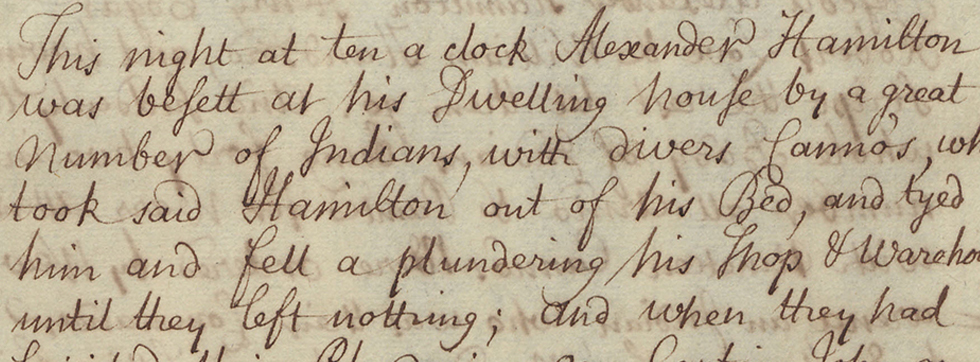 This night at ten a clock Alexander Hamilton
was besett at his Dwelling house by a great
Number of Indians, with divers Canno's,
took said Hamilton out of his Bed, and tyed
him and fell a plundering his Shop &
until they left nothing; and when they had